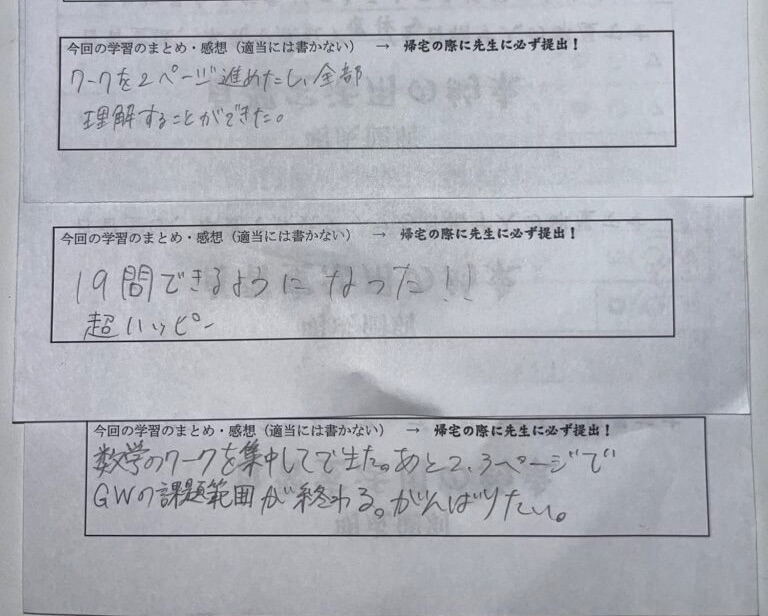 今回の学習のまとめ・感想（適当には書かない） → 帰宅の際に先生に必ず提出！
ワークを2ページ進めたし、全部
理解することができた。
今回の学習のまとめ・感想（適当には書かない） → 帰宅の際に先生に必ず提出！
19問できるようになった!!
超ハッピー
今回の学習のまとめ・感想（適当には書かない） → 帰宅の際に先生に必ず提出！
数学のワークを集中してできた。あと2,3ページで
GWの課題範囲が終わる。がんばりたい。